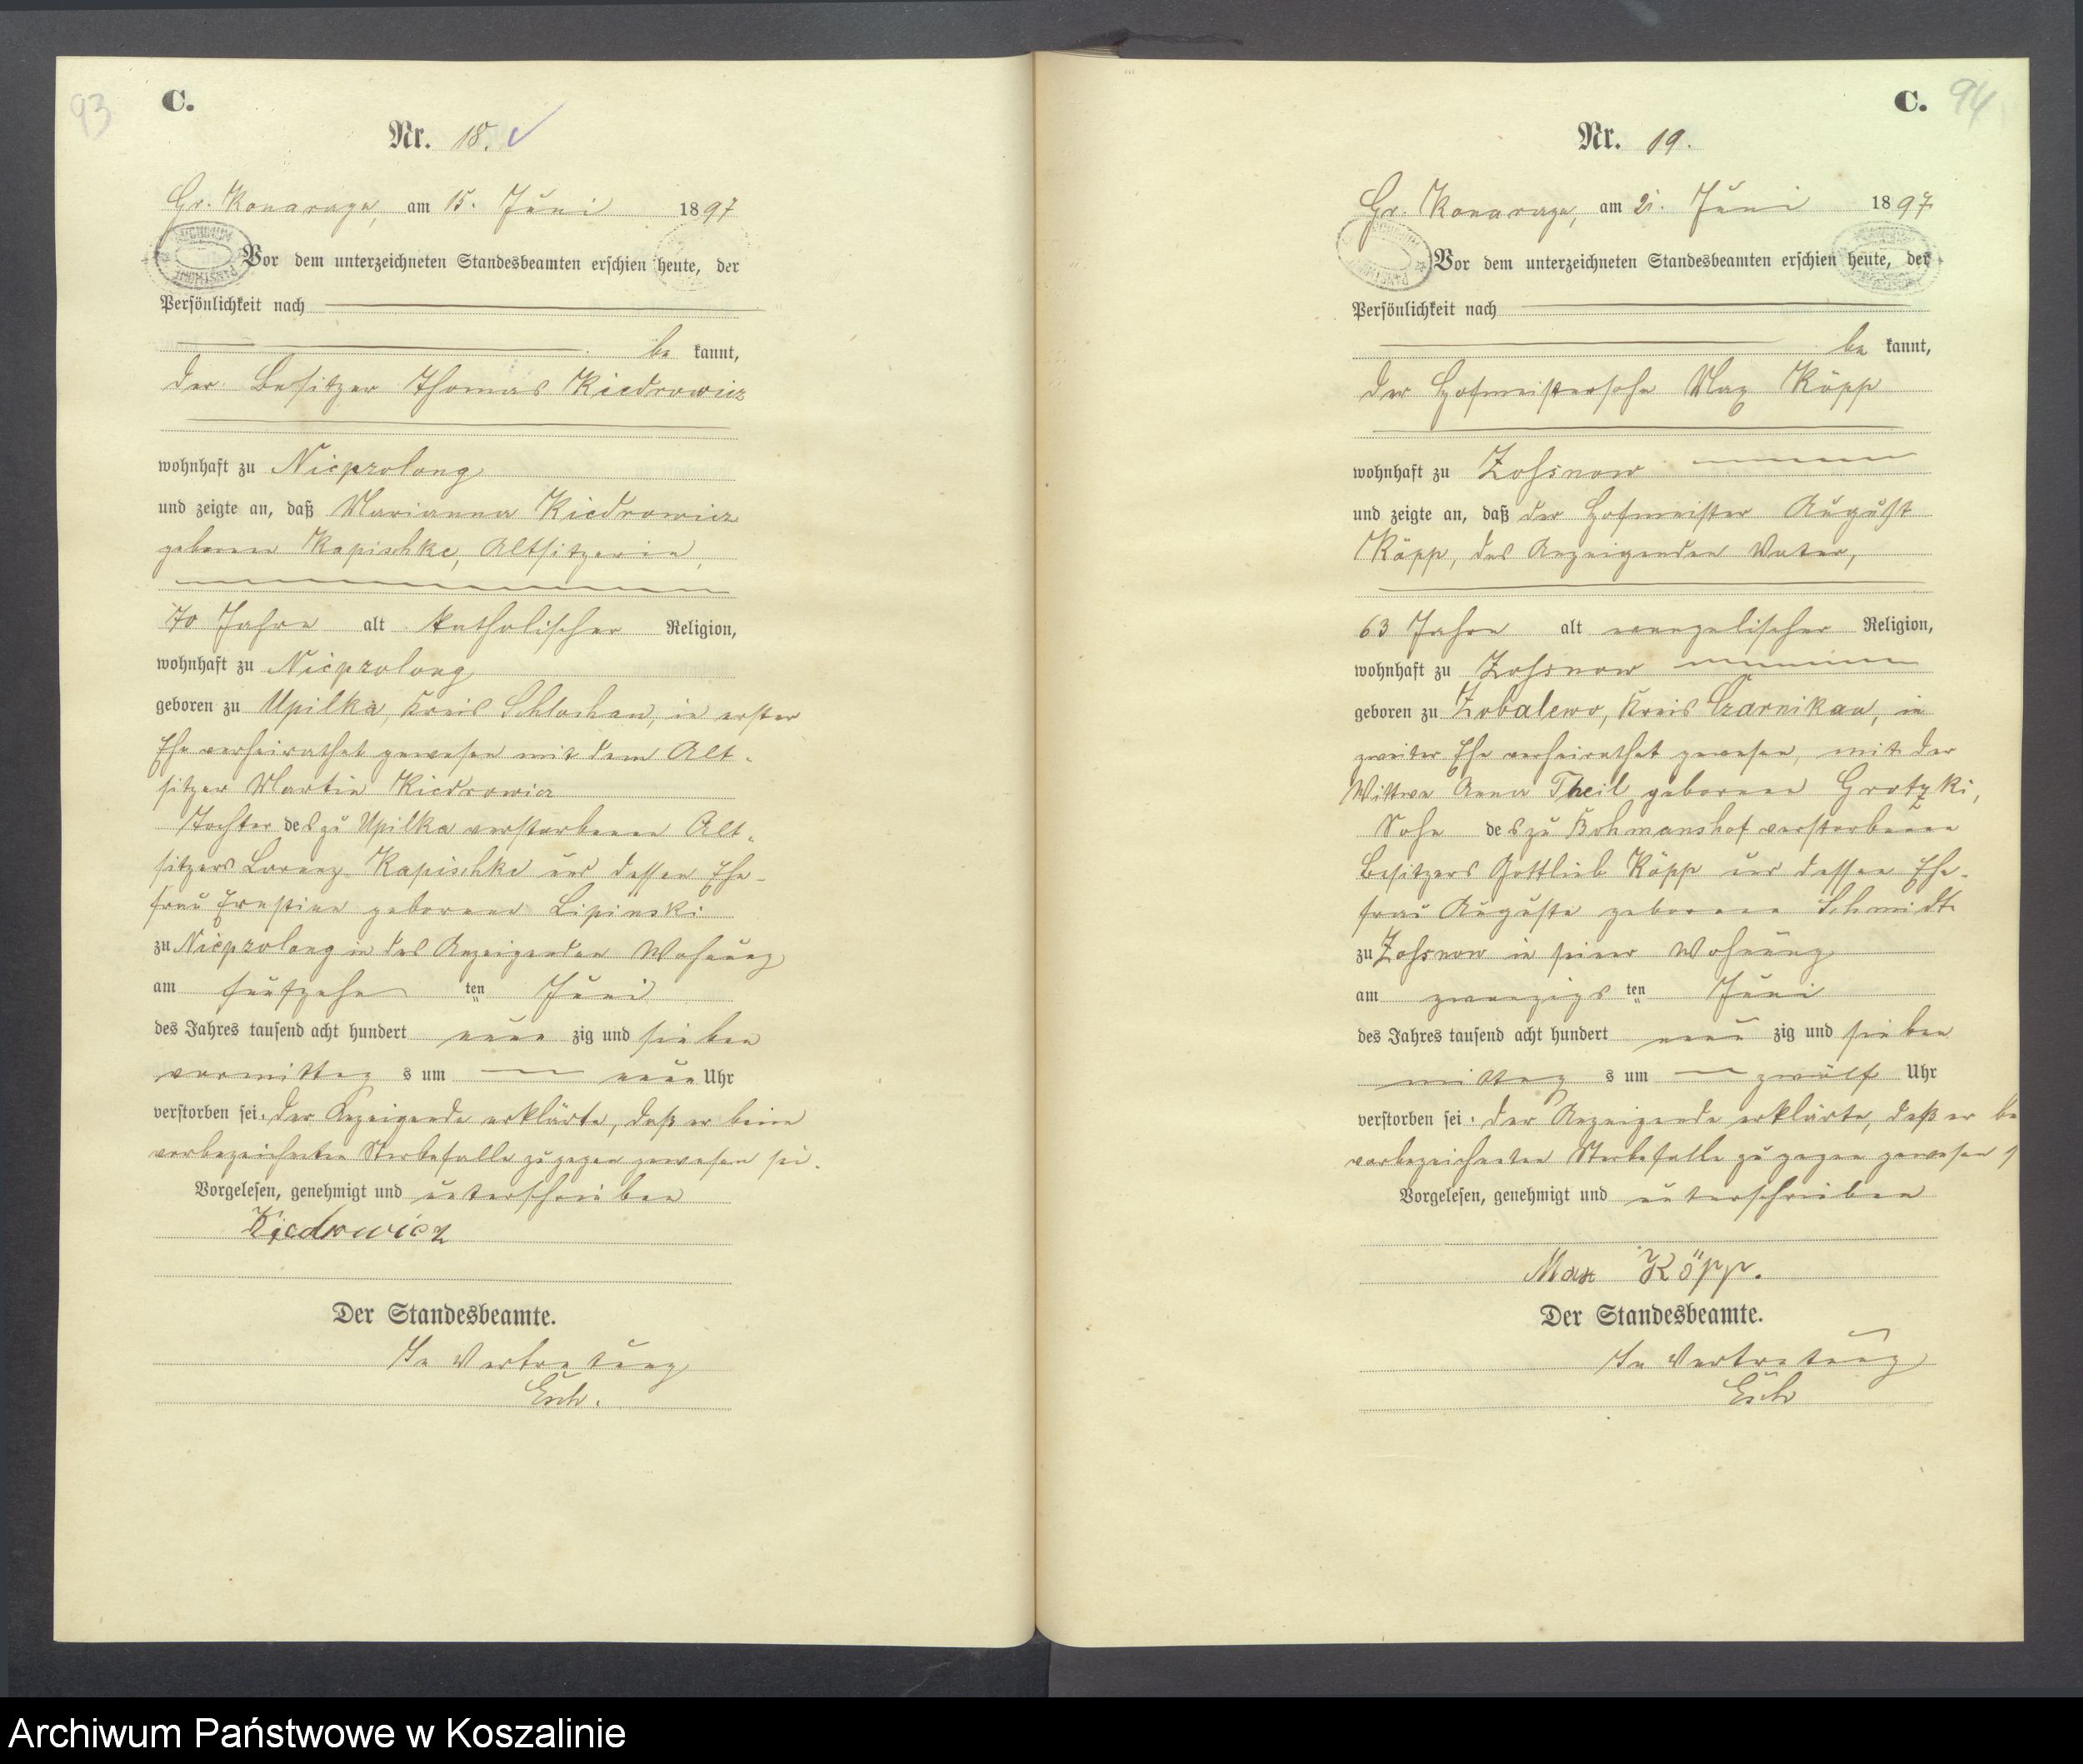 93
C.
Nr. 18.
Gr. Konarzyn, am 15. Juni 1897
Vor dem unterzeichneten Standesbeamten erschien heute, der
Persönlichkeit nach
be kannt,
der Besitzer Thomas Kiedrowicz
wohnhaft zu Nieprolong
und zeigte an, daß Marianna Kiedrowicz
geborene Kapischke, Altsitzerin,
70 Jahre alt katholischer Religion,
wohnhaft zu Nieprolong
geboren zu Upilka, Kreis Schlochau, in erster
Ehe verheirathet gewesen mit dem Alt-
sitzer Martin Kiedrowicz
Tochter des zu Upilka verstorbenen Alt-
sitzers Lorenz Kapischke und dessen Ehe-
frau Ernstine geborene Lipinski
zu Nieprolong in des Anzeigenden Wohnung
am fünfzehn ten Juni
des Jahres tausend acht hundert neun zig und sieben
vormittag s um neun Uhr
verstorben sei. Der Anzeigende erklärte, daß er beim
vorbezeichneten Sterbefalle zugegen gewesen sei.
Vorgelesen, genehmigt und unterschrieben
Kiedrowicz
Der Standesbeamte.
In Vertretung
Esch.
C. 94
Nr. 19.
Gr. Konarzyn, am 21. Juni 1897
Vor dem unterzeichneten Standesbeamten erschien heute, der
Persönlichkeit nach
be kannt,
der Hofmeistersohn Max Köpp
wohnhaft zu Zohsnow
und zeigte an, daß der Hofmeister August
Köpp, des Anzeigenden Vater,
63 Jahre alt evangelischer Religion,
wohnhaft zu Zohsnow
geboren zu Zobalewo, Kreis Czarnikau, in
zweiter Ehe verheirathet gewesen, mit der
Wittwe Anna Theil geborene Grotzki,
Sohn des zu Bohmanshof verstorbenen
Besitzers Gottlieb Köpp und dessen Ehe-
frau Auguste geborene Schmidt
zu Zohsnow in seiner Wohnung
am zwanzigs ten Juni
des Jahres tausend acht hundert neun zig und sieben
mittag s um zwölf Uhr
verstorben sei. Der Anzeigende erklärte, daß er be
vorbezeichneten Sterbefalle zugegen gewesen s
Vorgelesen, genehmigt und unterschrieben
Max Köpp.
Der Standesbeamte.
In Vertretung
Esch
Archiwum Państwowe w Koszalinie